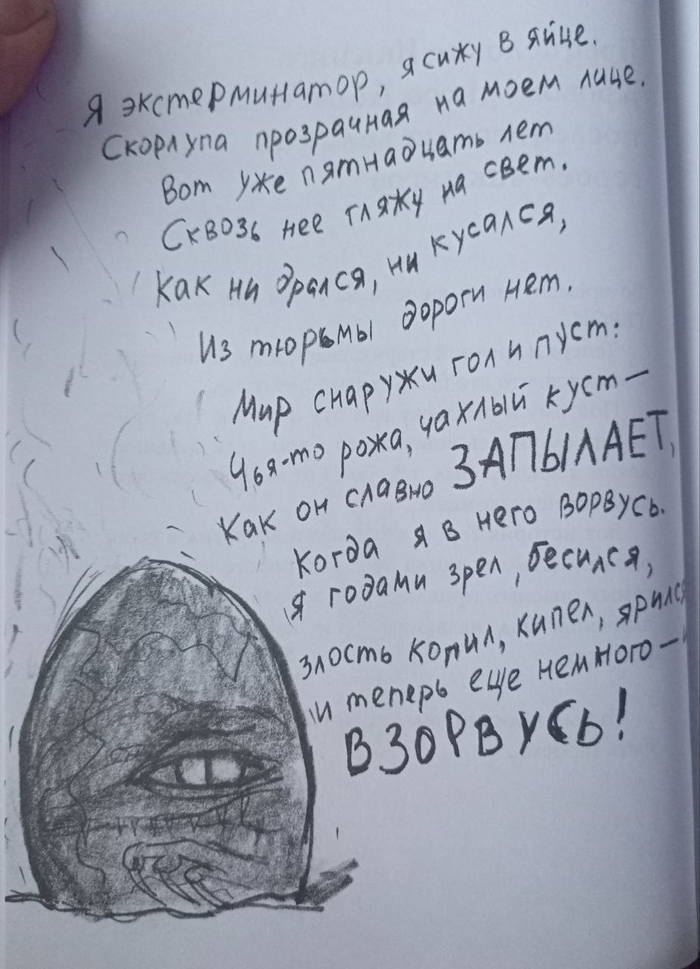 Я экстерминатор, я сижу в яйце.
Скорлупа прозрачная на моем лице.
Вот уже пятнадцать лет
Сквозь нее гляжу на свет.
Как ни дрался, ни кусался,
Из тюрьмы дороги нет.
Мир снаружи гол и пуст:
Чья-то рожа, чахлый куст —
Как он славно ЗАПЫЛАЕТ,
Когда я в него ворвусь.
Я годами зрел, бесился,
злость копил, кипел, ярился
и теперь еще немного —
ВЗОРВУСЬ!